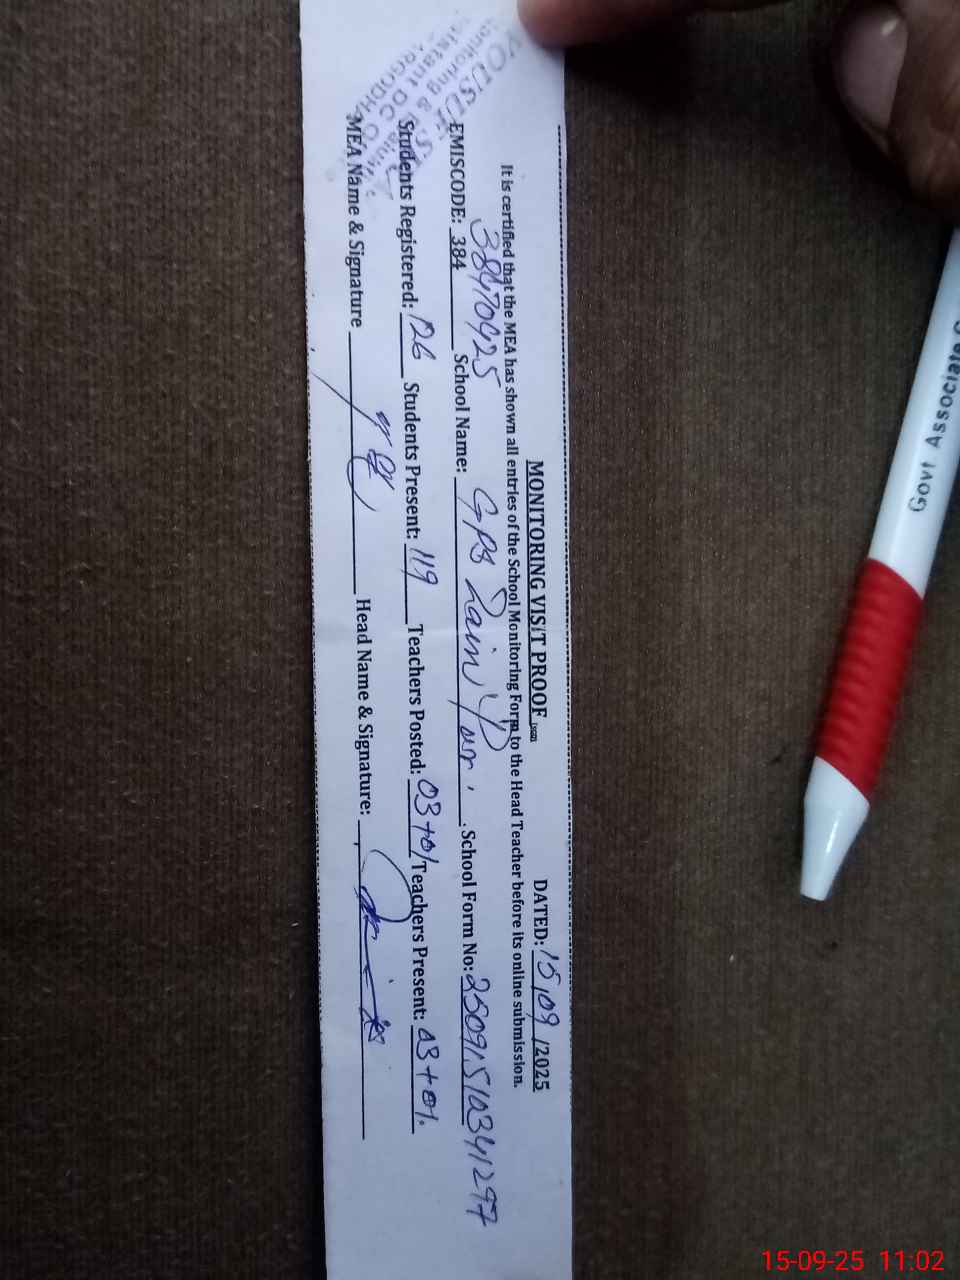 MONITORING VISIT PROOF DATED: 15,09 /2025
It is certified that the MEA has shown all entries of the School Monitoring Form to the Head Teacher before its online submission.
38470425
EMISCODE: 384 School Name: GPS Zain Pur. . School Form No: 25091510341297
Students Registered: 126 Students Present: 119 Teachers Posted: 03+01 Teachers Present: 03+01.
MEA Name & Signature Head Name & Signature:
Govt Associate
15-09-25 11:02